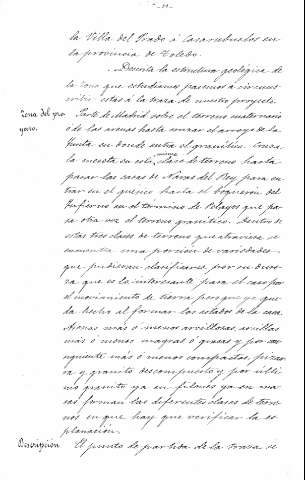 la Villa del Prado á Casarrubuelos en
la provincia de Toledo.
Descrita la estructura geológica de
la zona que estudiamos pasemos a circuns-
cribir esta á la traza de nuestro proyecto.
Zona del pro-
yecto.
Parte de Madrid sobre el terreno cuaternario
ó de las arenas hasta cruzar el arroyo de la
en donde entra el granítico. Cruza
la cuesta en esta clase de terreno hasta
pasar las casas de Navas del Rey, para en-
trar en el gneiss hasta el Boquerón del
Infierno en el término de Pelayos que pa-
sa otra vez al terreno granítico. Dentro de
estas tres clases de terreno que atraviesa se
encuentra una porción de variedades
que pudieran clasificarse por su dure-
za que es lo interesante para el caso por
el movimiento de tierra porque ya que-
da hecho al formar los estados de la casa.
Arenas más ó menos arcillosas, arcillas
más ó menos magras ó grasas y por con-
siguiente más ó menos compactas, pizar-
ra y granito descompuesto y por últi-
mo granito ya en filones ya en ma-
sas forman las diferentes clases de terre-
nos en que hay que verificar la es-
planación.
Descripción
El punto de partida de la traza se